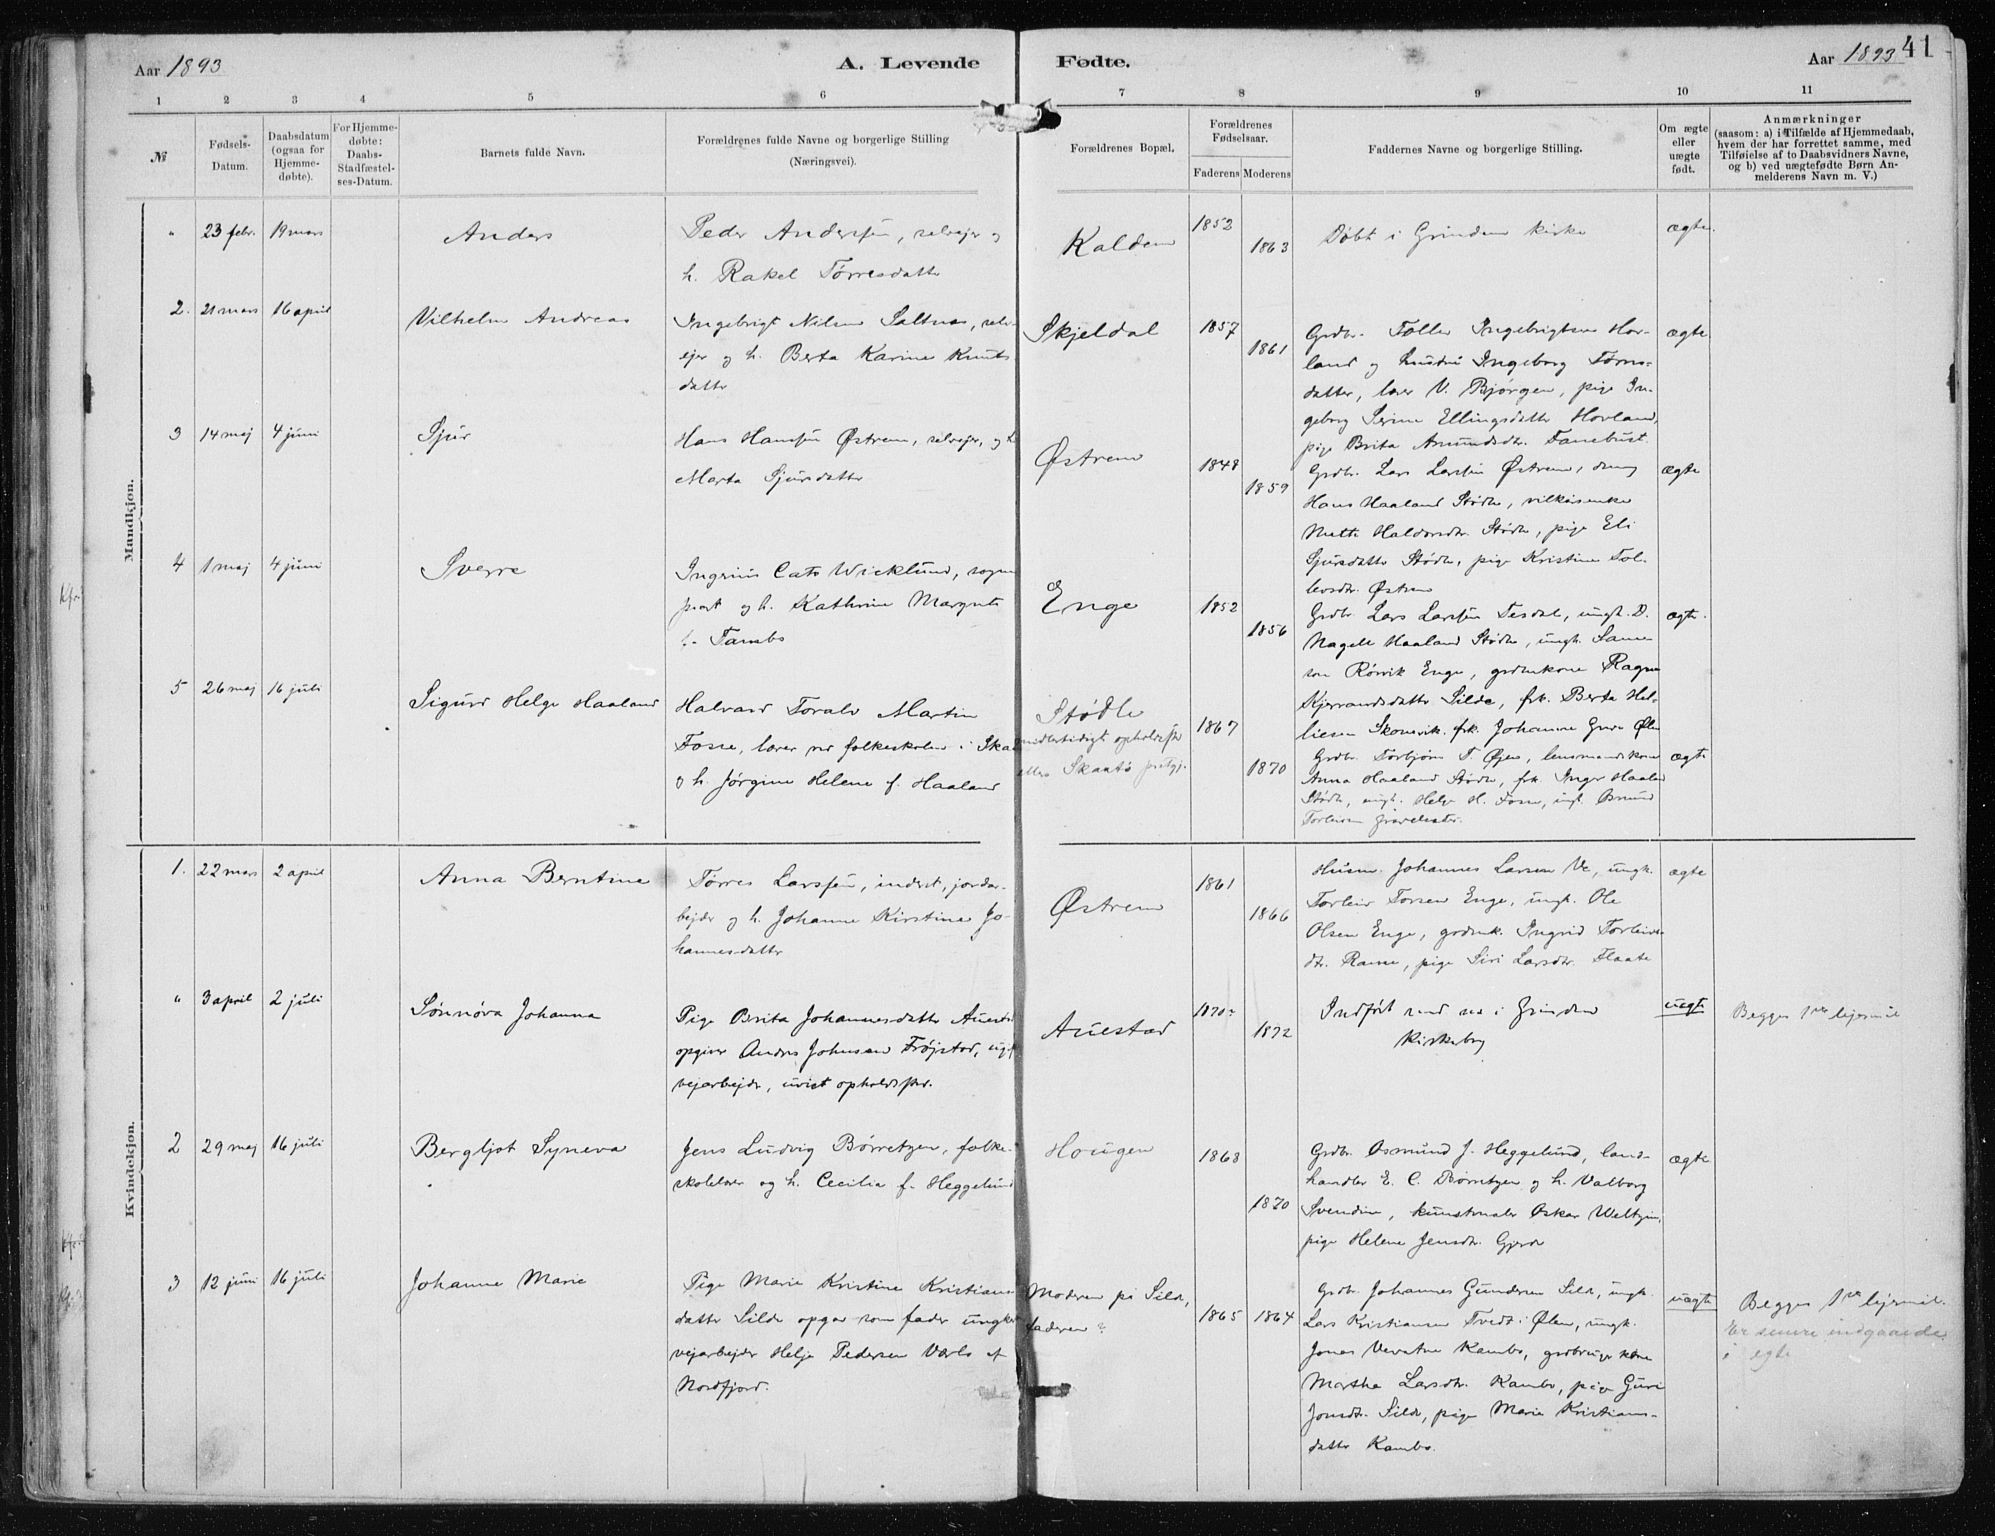 Aar 1893
A. Levende
Fødte.
Aar 1893
41
1 2 3 4 5 6 7 8 9 10 11
№
Fødsels-
Datum.
Daabsdatum
(ogsaa for
Hjemme-
døbte).
For Hjemme-
døbte:
Daabs-
Stadfæstel-
ses-Datum.
Barnets fulde Navn.
Forældrenes fulde Navne og borgerlige Stilling
(Næringsvei).
Forældrenes Bopæl.
Forældrenes
Fødselsaar.
Faderens Moderens
Faddernes Navne og borgerlige Stilling.
Om ægte
eller
uægte
født.
Anmærkninger
(saasom: a) i Tilfælde af Hjemmedaab,
hvem der har forrettet samme, med
Tilføielse af to Daabsvidners Navne,
og b) ved uægtefødte Børn An-
melderens Navn m. V.)
Mandkjøn.
" 23 febr. 19 mars
Anders
Peder Anderssen, selvejer og
h. Rakel Tørresdatter
1852
1863
Døbt i Grinden kirke
ægte.
2. 21 mars 16 april
Vilhelm Andreas
Ingebrigt Nilsen Saltnes, selv-
ejer og h. Berta Karine Knuts
datter
Skjeldal
1857
1861
Grdbr. Tollev Ingebrigtsen Hov-
land og hustru Ingeborg
datter, lærer V. Bjørgen, pige In-
geborg Serine Ellingsdatter Hovland,
pige Brita Amundsdtr.
ægte
3 14 maj 4 juni
Sjur
Hans Hanssen Østrem, selvejer, og h.
Marta Sjursdatter
Østrem
1848
1859
Grdbr. Lars Larssen Østrem,
Hans Haaland Stødle,
Haldorsdtr. Stødle, pige Eli
Sjursdatter Stødle, pige Kristine Tol-
levsdtr. Østrem
ægte
4 1 maj 4 juni
Sverre
Ingenius Cato Wicklund, sogne
prest og h. Kathrine Margrete
f. Tambs
Enge
1852
1856
Grdbr. Lars Larssen Tesdal, ungk. D.
Nagell Haaland Stødle, ungk.
Rørvik Enge, grdmkone Ragna
Silde, frk. Berta Hel-
liesen Skonevik, frk. Johanne Ølen
ægte.
5 26 maj 16 juli
Sigurd Helge Haaland
Halvard Toralv Martin
Fosse, lærer ved folkeskolen i
og h. Jørgine Helene f. Haaland
Stødle
midlertidigt
ellers Skaatø prstgj.
1867
1870
Grdbr. Torbjørn T. Øjen, lensmandskone
Anna Haaland Stødle, frk. Inger Haaland
Stødle, ungk. Helge H. Fosse, ungk.
ægte
Kvindekjøn.
1. 22 mars 2 april
Anna Berntine
Tørres Larssen, inderst, jordar-
bejder og h. Johanne Kirstine Jo-
hannesdatter
Østrem
1861
1866
Husm. Johannes Larsen Ve, ungk.
Torleiv Torsen Enge, ungk. Ole
Olsen Enge, grdmk. Ingrid Torleivs
dtr. Rame, pige Siri Larsdtr. Flaate
ægte
" 3 april 2 juli
Sønnøva Johanna
Pige Brita Johannesdatter Auestad
opgiver Andres Johnsen Frøjstad, ugift
vejarbejder, uvist opholdssted.
Auestad
1870?
1872
Indført under i Grinden
Kirkebog
uægte
Begges 1ste lejermål
2 29 maj 16 juli
Bergljot Syneva
Jens Ludvig Børretzen, folke-
skolelærer og h. Cecilia f. Heggelund
Hougen
1868
1870
Grdbr. Osmund J. Heggelund, land-
handler E. C. Børretzen og h. Valborg
Svendine, kunstmaler Oskar Weltzin,
pige Helene Jensdtr. Gjerde
ægte
3 12 juni 16 juli
Johanne Marie
Pige Marie Kristine Kristians-
datter Silde opgav som fader ungkar
vejarbejder Helje Pedersen af
Nordfjord.
Moderen på Silde,
faderen?
1865
1864
Grdbr. Johannes Gundersen Silde, ungk.
Lars Kristiansen Tvedt i Ølen, ungk.
Jonas Kambo, grdbrugerkone
Martha Larsdtr. Kambo, pige Guri
Jonsdtr. Silde, pige Marie Kristians-
datter Kambo.
uægte
Begges 1ste lejermål.
Er senere indgaaede
i egte